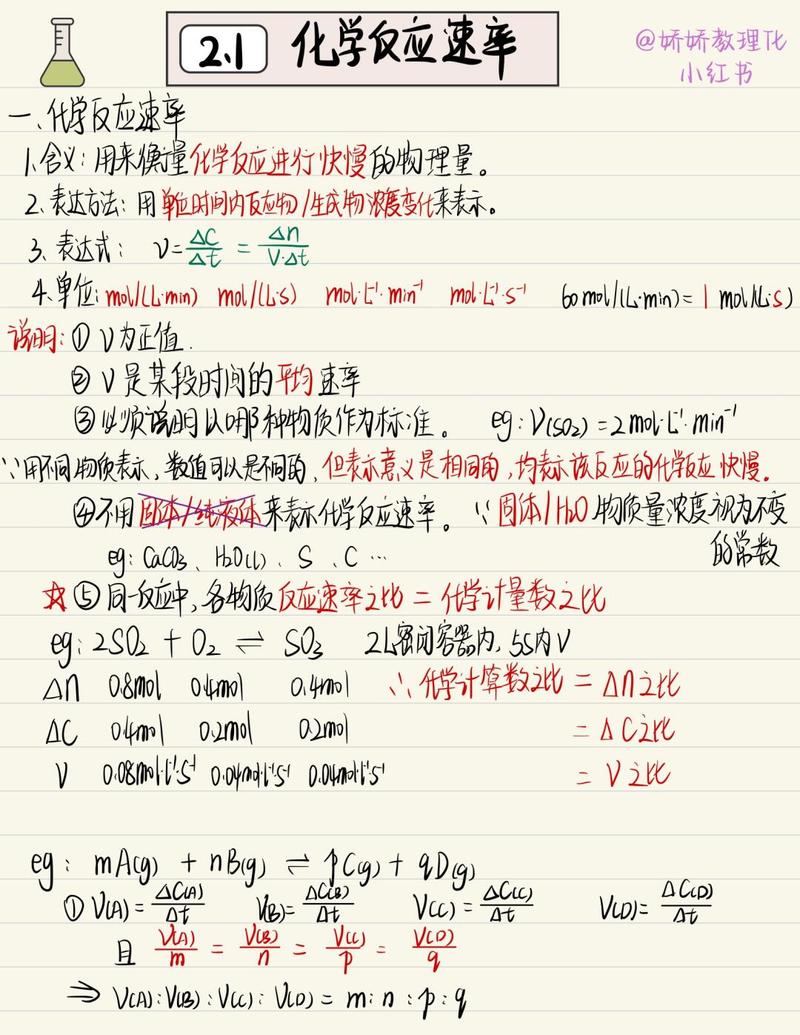 2.1 化学反应速率
@娇娇教理化
小红书
一、化学反应速率
1.含义：用来衡量化学反应进行快慢的物理量。
2.表达方法：用单位时间内反应物/生成物浓度变化来表示。
3.表达式： V=ΔC/Δt = Δn/V·Δt
4.单位：mol/(L·min) mol/(L·s) mol·L⁻¹·min⁻¹ mol·L⁻¹·s⁻¹ 60mol/(L·min)=1 mol/(L·s)
说明：① V为正值.
② V是某段时间的平均速率
③必须说明以哪种物质作为标准。 eg：V(SO₂)=2mol·L⁻¹·min⁻¹
∵用不同物质表示，数值可以是不同的，但表示意义是相同的，均表示该反应的化学反应快慢。
④不用固体/纯液体来表示化学反应速率。∵固体/H₂O物质量浓度视为不变
的常数
eg：CaCO₃、H₂O(l)、S、C…
☆⑤同一反应中，各物质反应速率之比=化学计量数之比
eg：2SO₂ + O₂ ⇌ SO₃ 2L密闭容器内，5s内V
Δn 0.8mol 0.4mol 0.4mol ∴化学计算数之比=Δn之比
ΔC 0.4mol 0.2mol 0.2mol =ΔC之比
V 0.08mol·L⁻¹·S⁻¹ 0.04mol·L⁻¹S⁻¹ 0.04mol·L⁻¹S⁻¹ =V之比
eg：mA(g) + nB(g) ⇌ pC(g) + qD(g)
①V(A)=ΔC(A)/Δt V(B)=ΔC(B)/Δt V(C)=ΔC(C)/Δt V(D)=ΔC(D)/Δt
且 V(A)/m = V(B)/n = V(C)/p = V(D)/q
⇒ V(A):V(B):V(C):V(D)=m:n:p:q